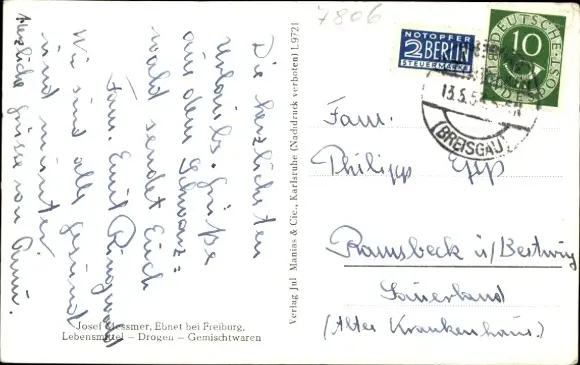 7806
Die herzlichsten
Urlaubs-Grüße
aus dem Schwarz=
wald sendet Euch
Fam. Emil Ringwald
Wir sind alle gesund
und munter.
Herzliche Grüsse von
Josef Messmer, Ebnet bei Freiburg,
Lebensmittel – Drogen – Gemischtwaren
Verlag Jul Manias & Cie., Karlsruhe (Nachdruck verboten) L 9721
NOTOPFER
2 BERLIN
STEUERMARKE
DEUTSCHE POST
10
13.5.5
(BREISGAU)
Fam.
Philipp
Ramsbeck ü/Bestwig
Sauerland
(Altes Krankenhaus.)